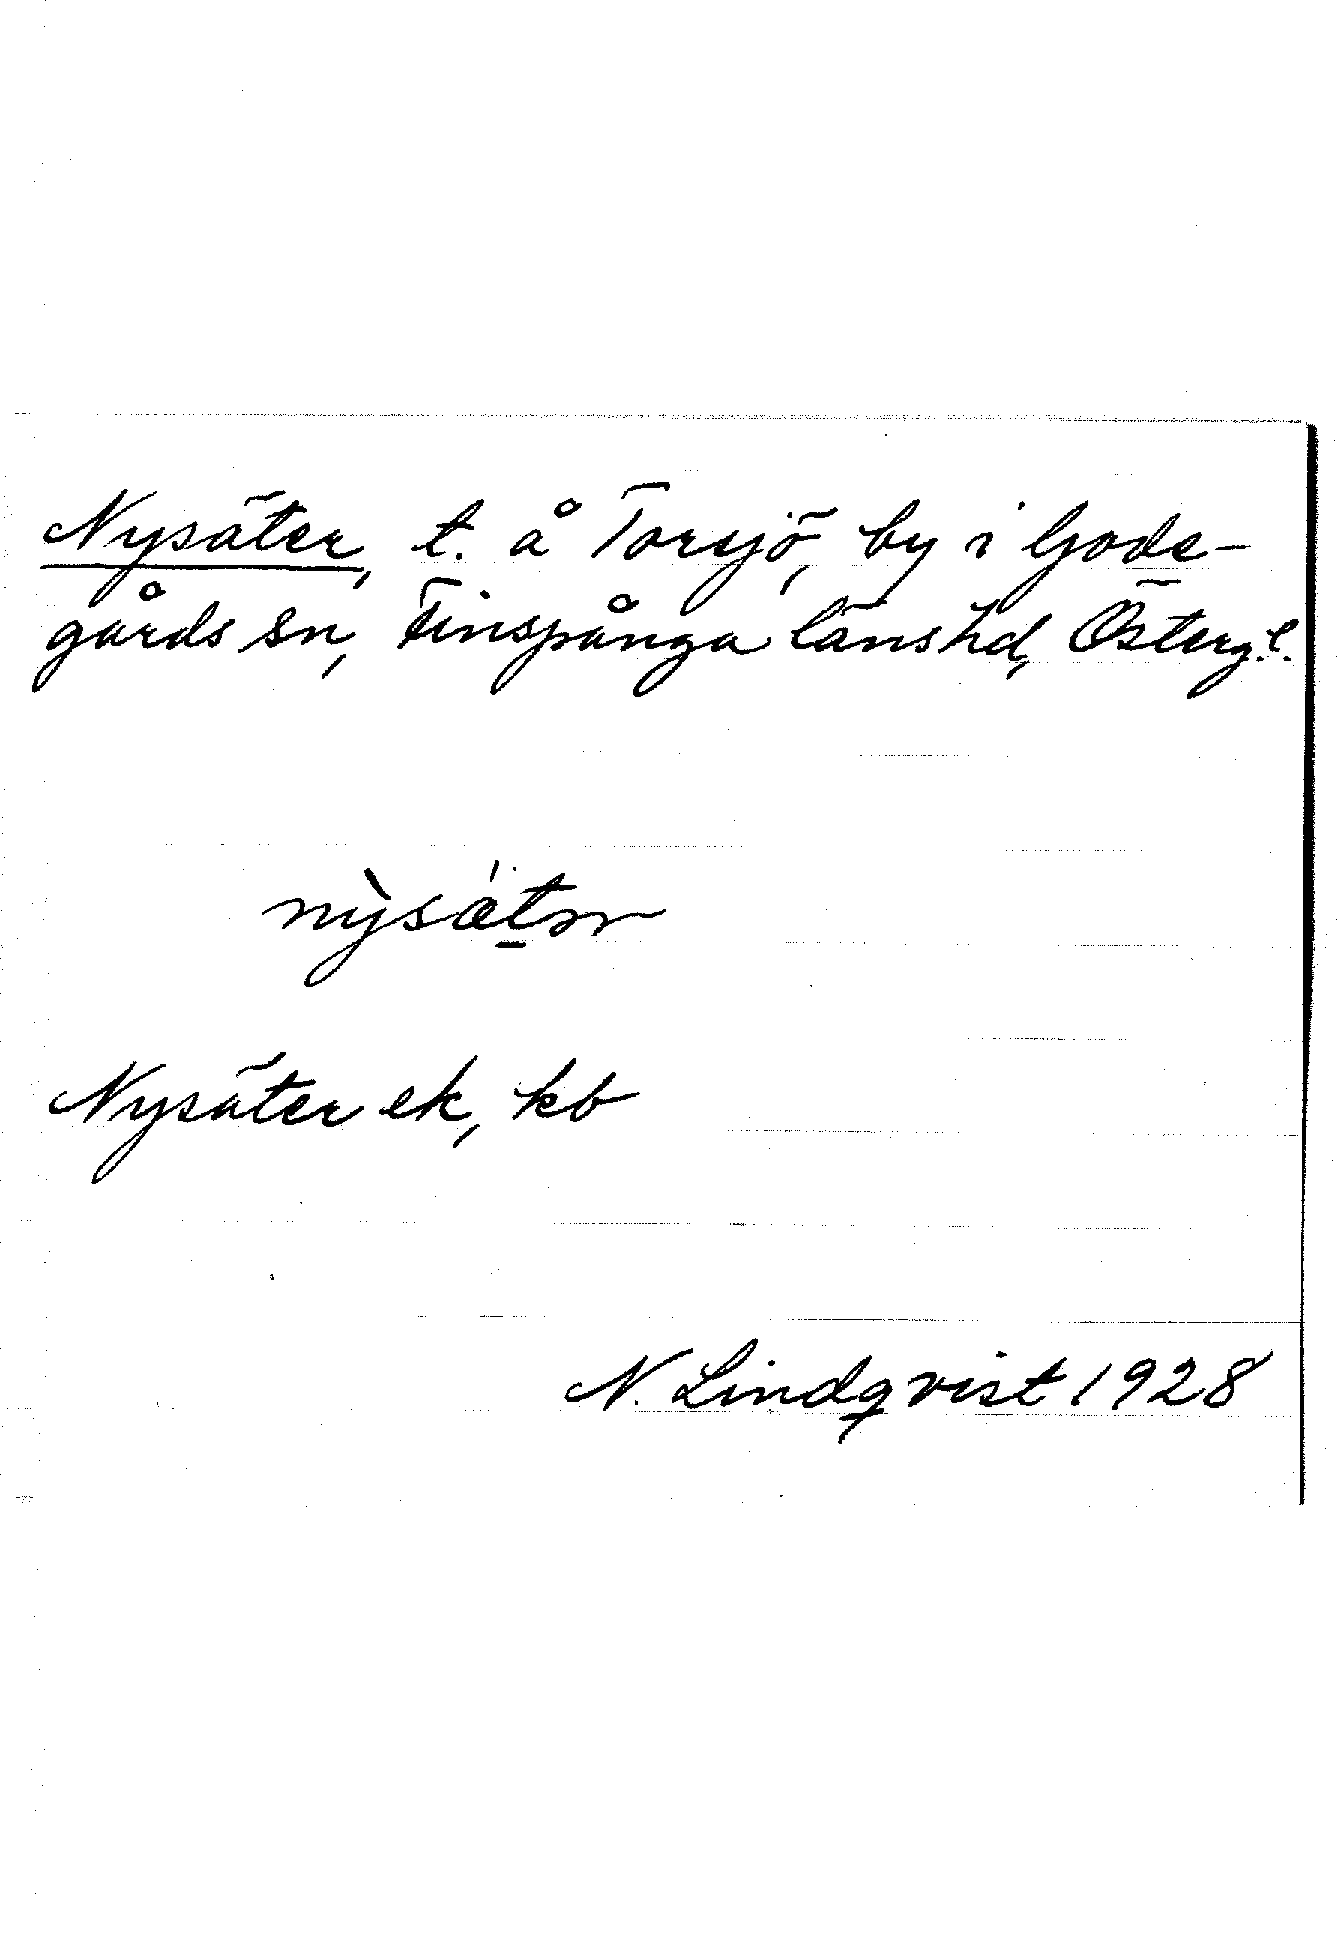 Nysäter, t. å Torsjö, by i Gode-
gårds sn, Finspånga läns hd, Österg.l.
nỳsätər
Nysäter ek, kb
N. Lindqvist 1928